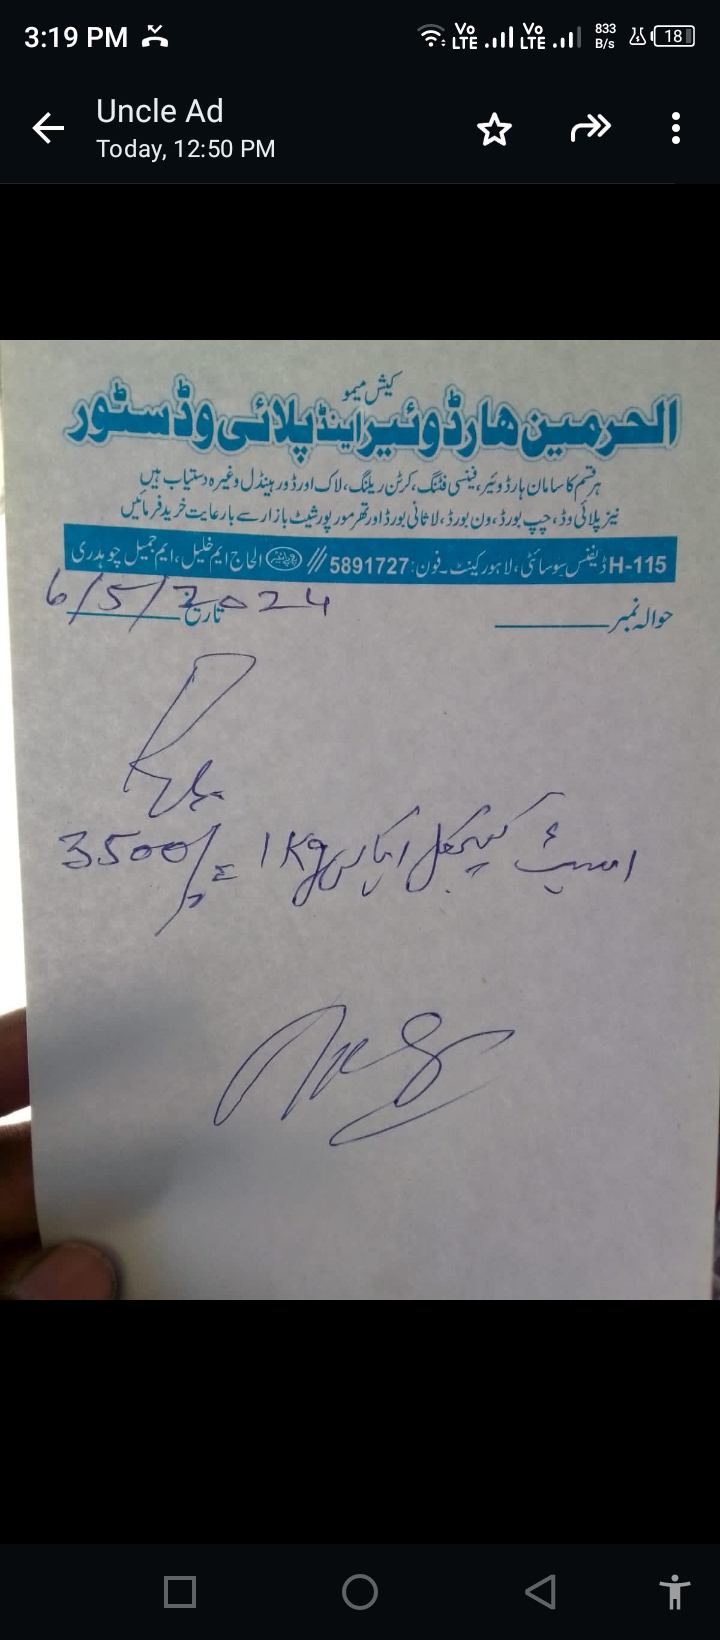 3:19 PM
Vo LTE Vo LTE 833 B/s 18
Uncle Ad
Today, 12:50 PM
کیش میمو
الحرمین ھارڈوئیر اینڈ پلائی وڈ سٹور
ہر قسم کا سامان ہارڈوئیر، فینسی فٹنگ، کرٹن ریلنگ، لاک اور ڈور ہینڈل وغیرہ دستیاب ہیں
نیز پلائی وڈ، چپ بورڈ، ون بورڈ، لاثانی بورڈ اور تھرمو پور شیٹ بازار سے بارعایت خرید فرمائیں
H-115 ڈیفنس سوسائٹی، لاہور کینٹ۔ فون: 5891727 // الحاج ایم خلیل، ایم جمیل چوہدری
حوالہ نمبر تاریخ 6/5/2024
کیمیکل 1 Kg = 3500/-